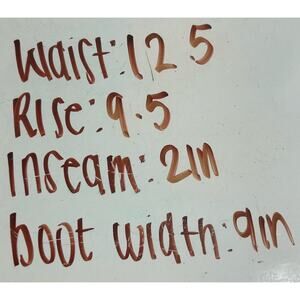 Waist: 12 5
Rise: 9.5
Inseam: 21in
boot width: 9in